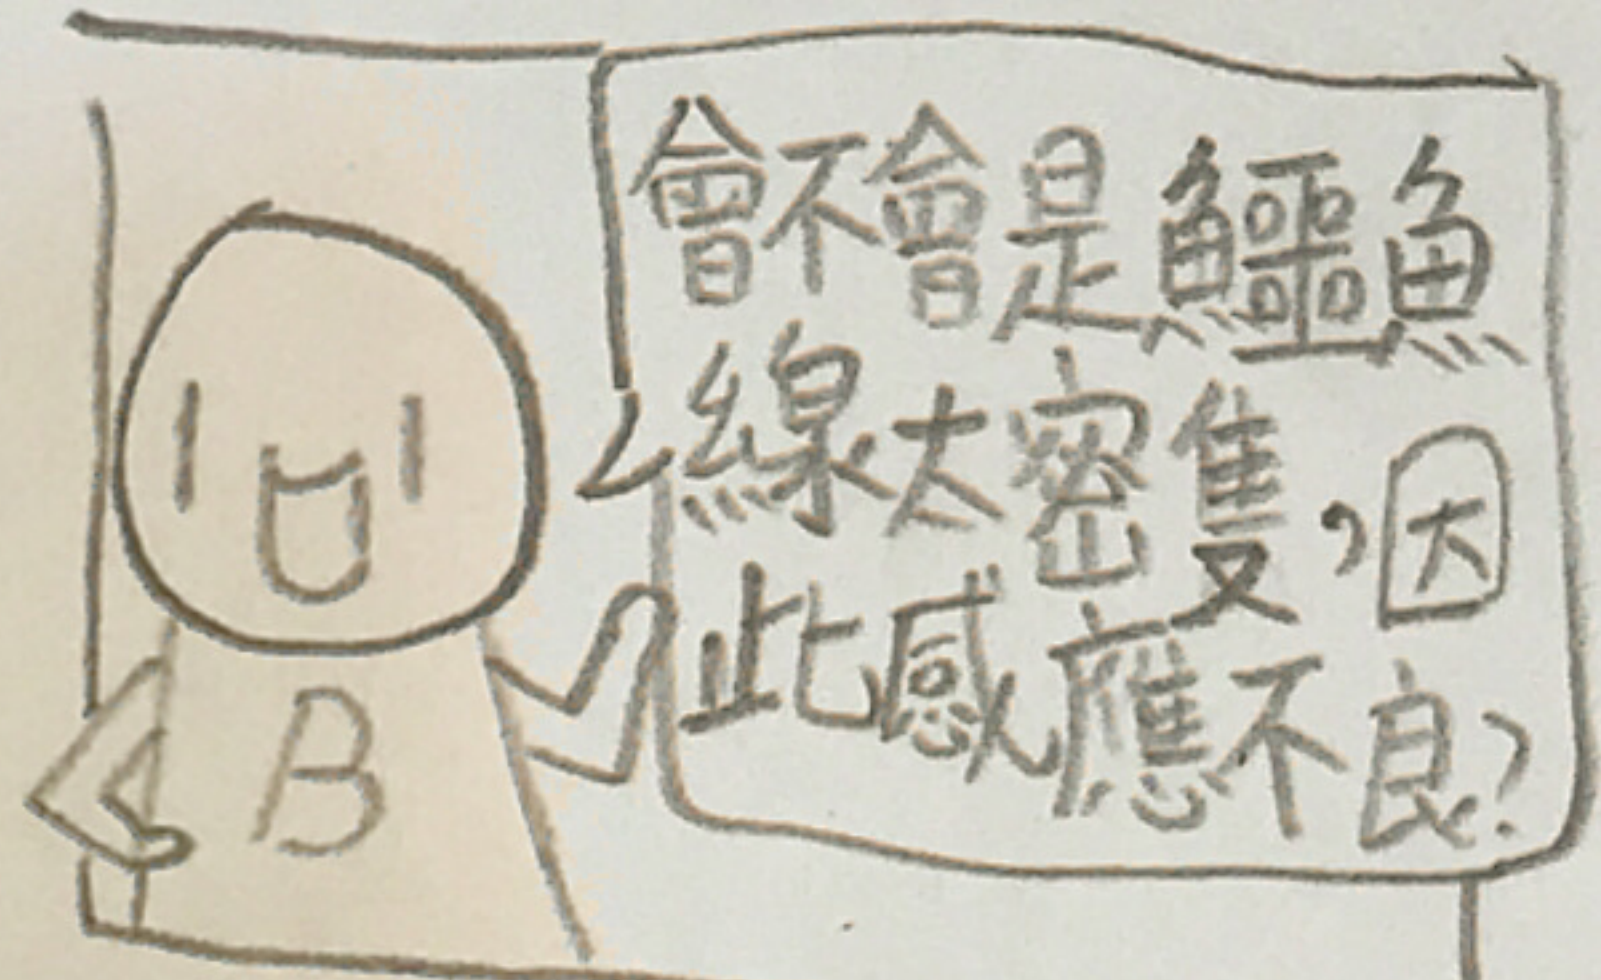 會不會是鱷魚
線太密隻,因
此感應不良?
B